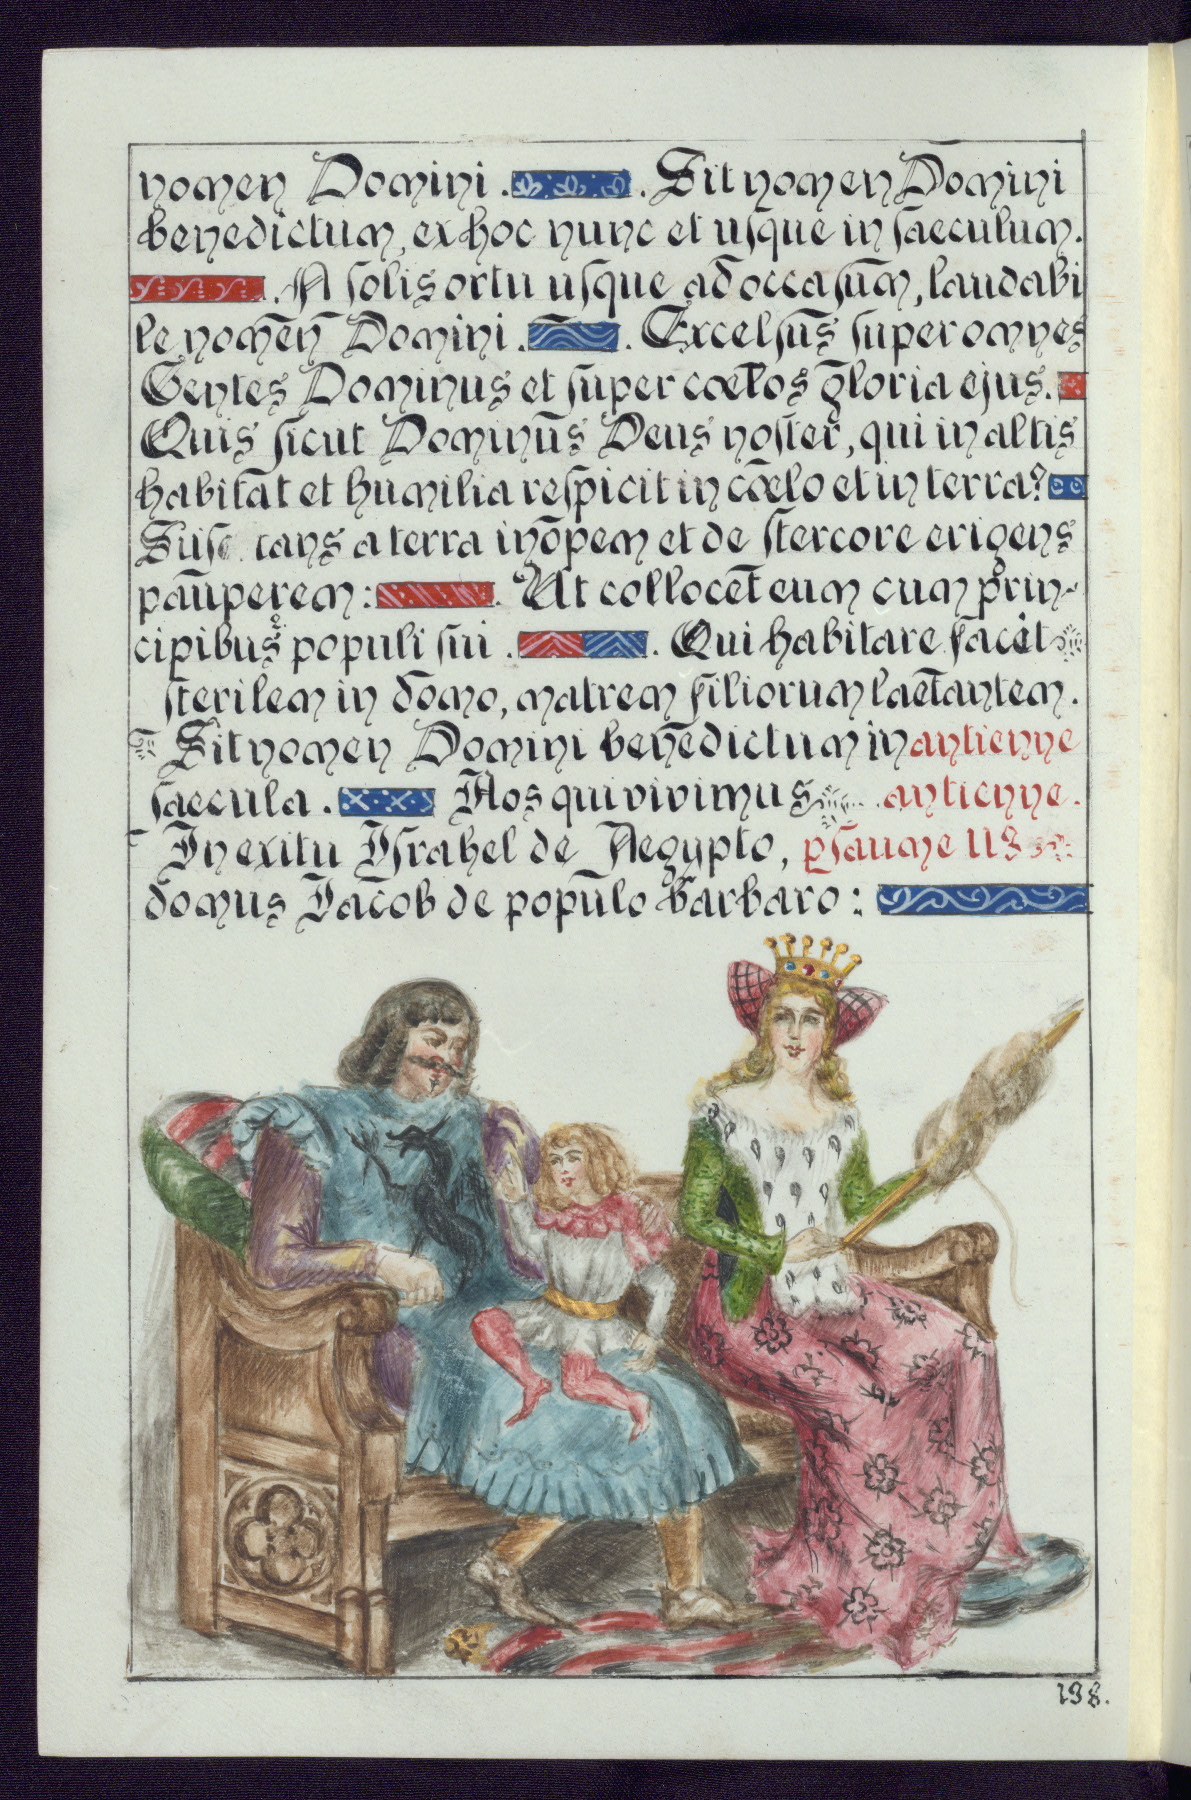 nomen Domini . . Sit nomen Domini
benedictum, ex hoc nunc et usque in saeculum.
. A solis ortu usque ad occasum, laudabi
le nomen Domini . . Excelsus super omnes
Gentes Dominus et super cœlos gloria ejus.
Quis sicut Dominus Deus noster, qui in altis
habitat et humilia respicit in cœlo et in terra?
Susc tans a terra inopem et de stercore erigens
pauperem: . Ut collocet eum cum prin-
cipibus populi sui . . Qui habitare facit
sterilem in domo, matrem filiorum laetantem.
Sit nomen Domini benedictum in antienne
saecula . Nos qui vivimus antienne.
In exitu Israhel de Aegypto, psaume 113
domus Iacob de populo barbaro:
198.